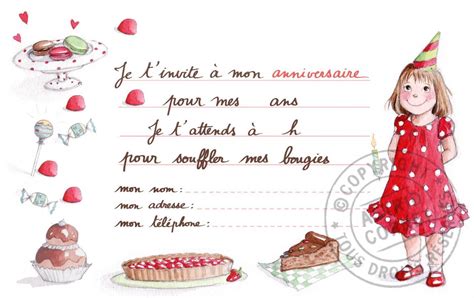 Je t'invite à mon anniversaire
pour mes ans
Je t'attends à h
pour souffler mes bougies
mon nom:
mon adresse:
mon téléphone:
© COPYRIGHT
TOUS DROITS